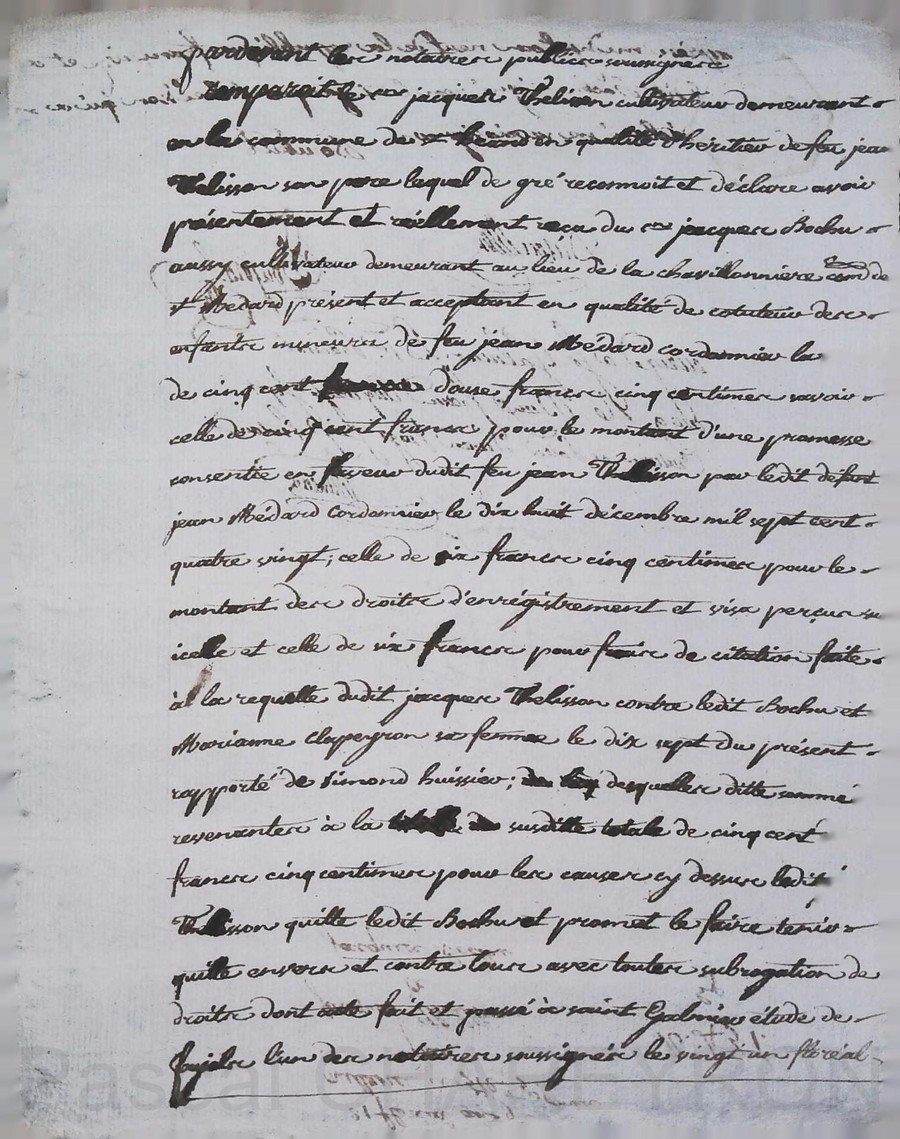 pardevant les notaires publics soussignés
comparoit le cen jacques Thelisson cultivateur demeurant
en la commune de st heand en qualité d'héritier de feu jean
Thelisson son pere lequel de gré reconnoit et déclare avoir
présentement et réellement reçu du cen jacques Bochu
aussy cultivateur demeurant au lieu de la chavillonniere com de
st Medard présent et acceptant en qualité de cotuteur des
enfants mineurs de feu jean Médard cordonnier la
de cinq cent douse francs cinq centimes savoir
celle de cinq cent francs pour le montant d'une promesse
consentie en faveur dudit feu jean Thelisson par ledit défunt
jean Médard cordonnier le dix huit décembre mil sept cent
quatre vingt, celle de six francs cinq centimes pour le
montant des droits d'enrégistrement et visa perçus su
icelle et celle de six francs pour frais de citation faite
à la requette dudit jacques Thelisson contre ledit Bochu et
Marianne Clapeyron sa femme le dix sept du présent
rapporté de Simond huissier; desquelles ditte somme
revenantes à la susditte totale de cinq cent
francs cinq centimes pour les causes cy dessus ledit
Thelisson quitte ledit Bochu et promet le faire tenir
quitte envers et contre tous avec toutes subrogation de
droits dont acte fait et passé à saint Galmier étude de
l'un des notaires soussignés le vingt un floréal
Pascal CLAPEYRON